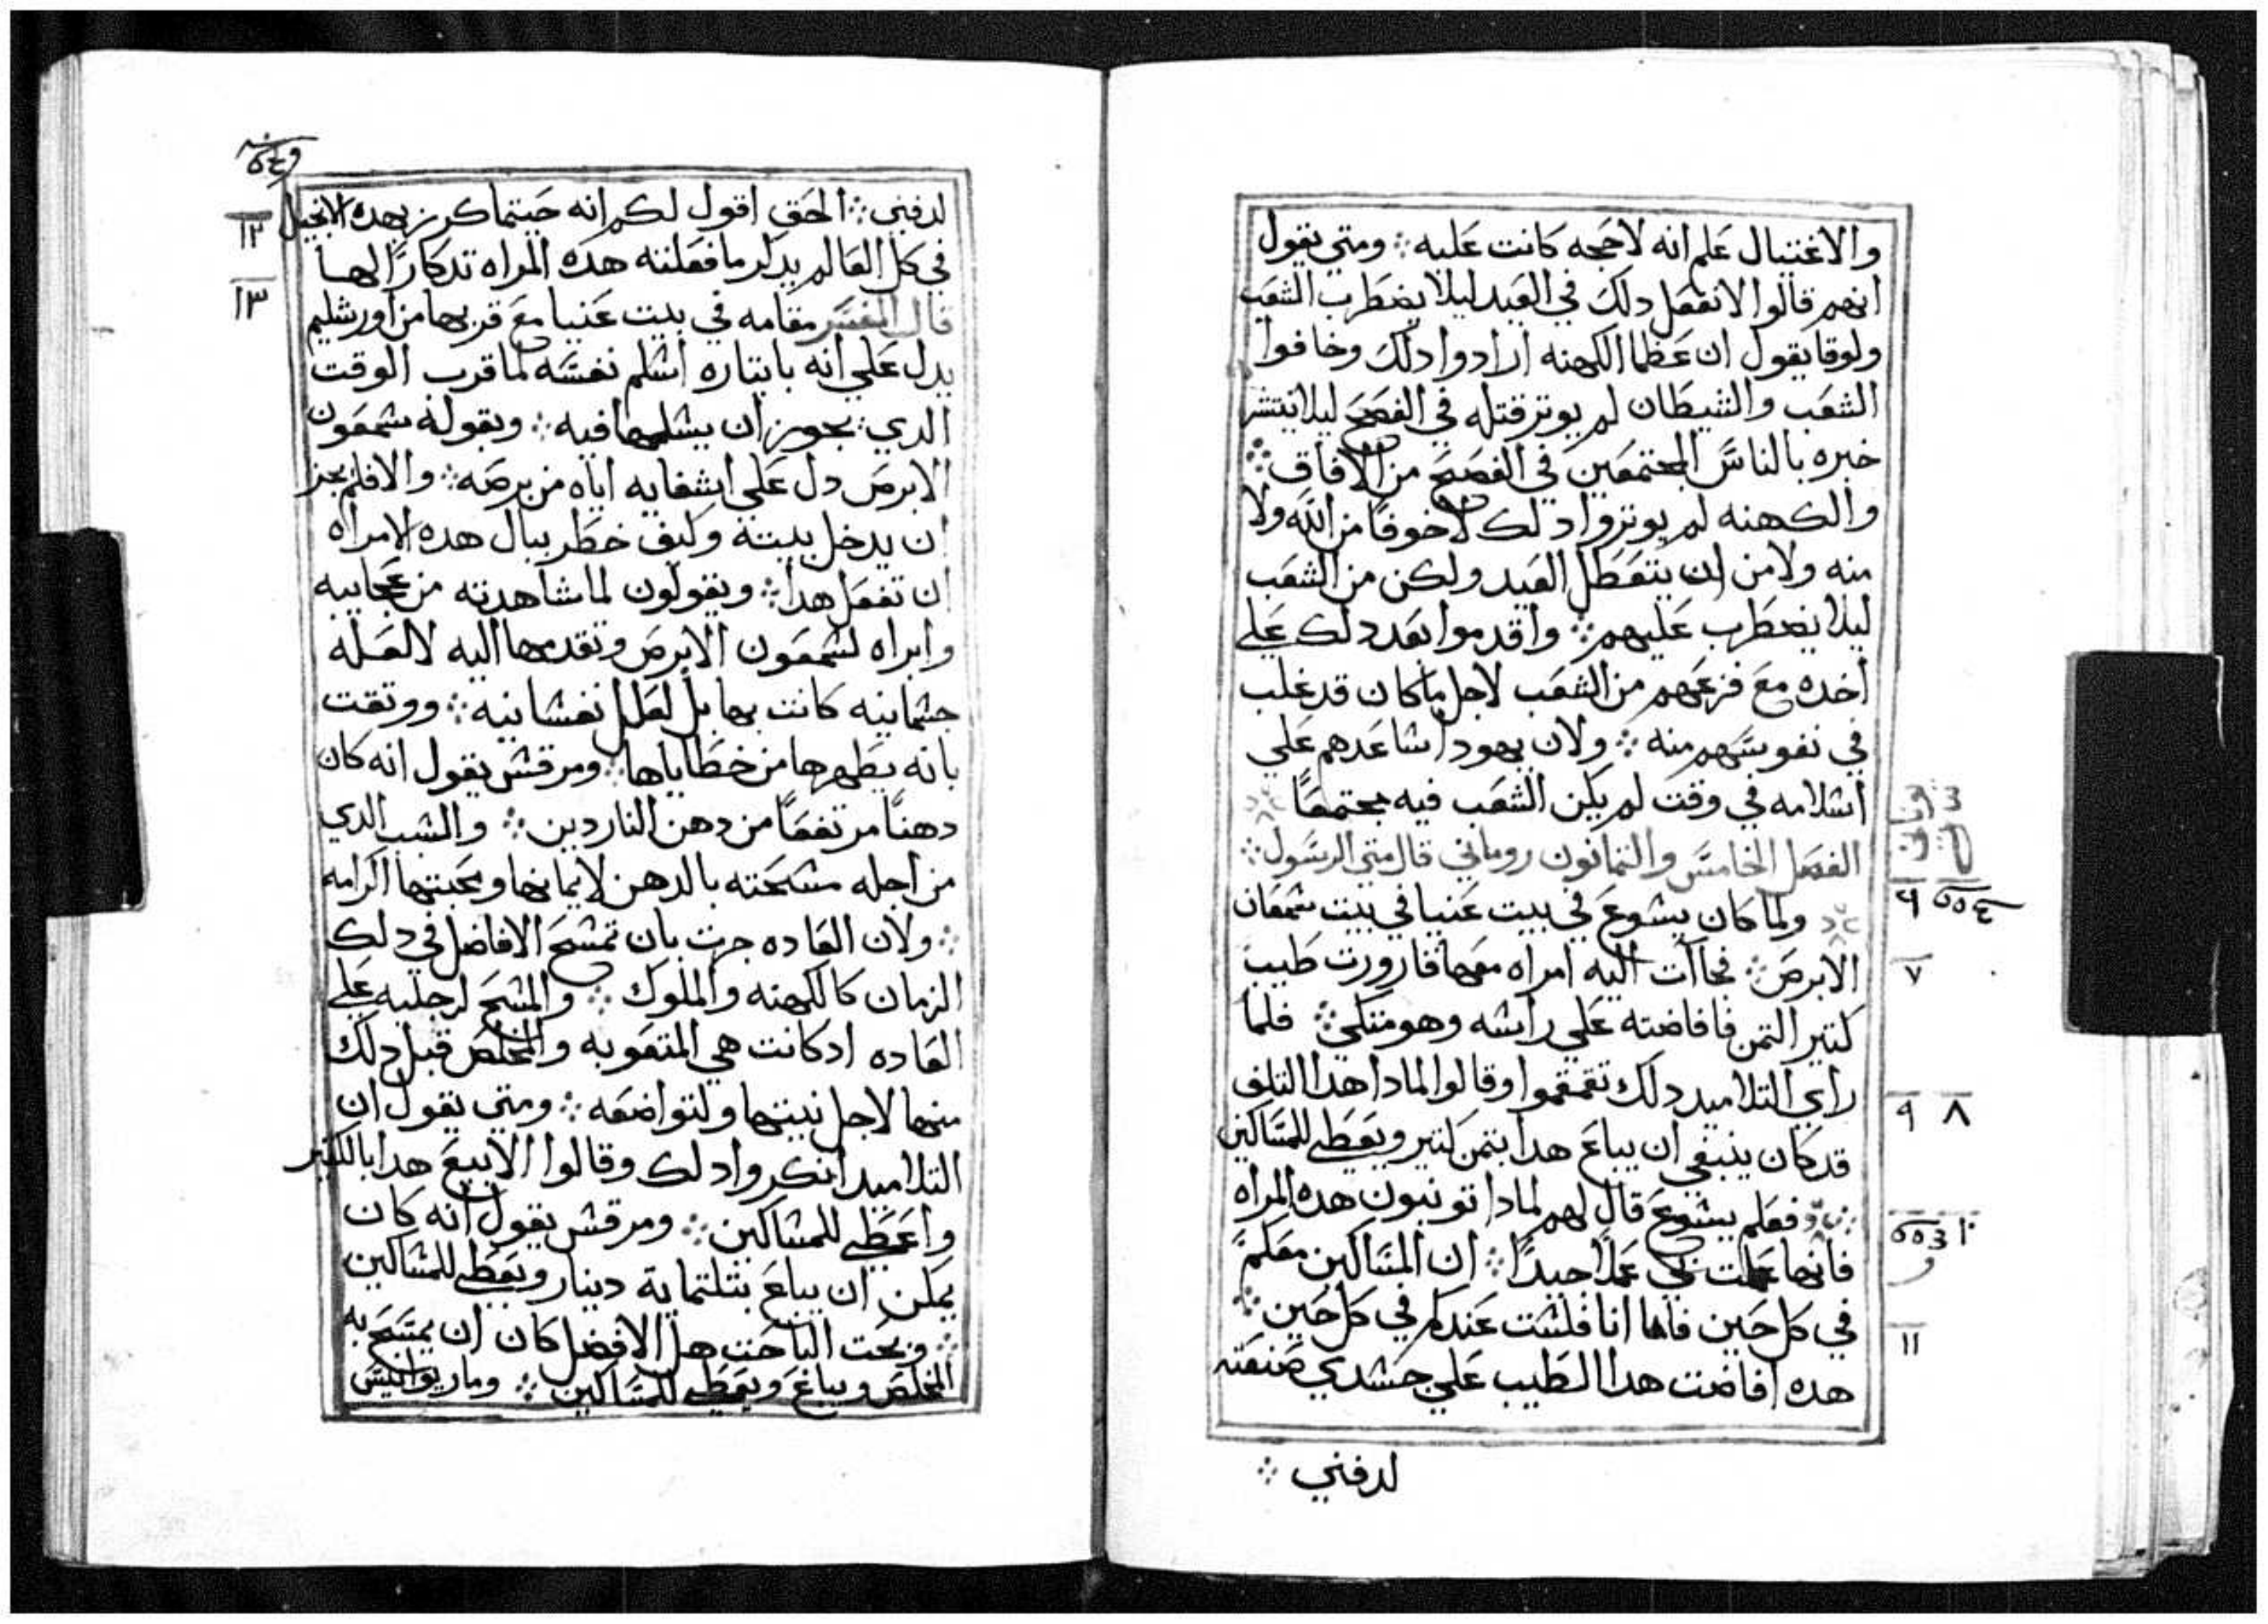 والاغتيال علم انه لاحجه كانت عليه ⁘ ومتي يقول
انهم قالوا لا نفعل دلك في العيد ليلا يضطرب الشعب
ولوقا يقول ان عظما الكهنه ارادوا دلك وخافوا
الشعب والشيطان لم يوتر قتله في الفصح ليلا ينتشر
خبره بالناس المجتمعين في الفصح من الافاق ⁘
والكهنه لم يوتروا دلك لا خوفا من الله ولا
منه ولا من ان يتعطل العيد ولكن من الشعب
ليلا يضطرب عليهم ⁘ واقدموا بعد دلك علي
اخده مع فزعهم من الشعب لاجل ما كان قد غلب
في نفوسهم منه ⁘ ولان يهودا ساعدهم علي
اسلامه في وقت لم يكن الشعب فيه مجتمعا
الفصل الخامس والتمانون روماني قال متي الرسول ⁘
ولما كان يسوع في بيت عنيا في بيت شمعان
٦
الابرص ⁘ فجاات اليه امراه معها قارورت طيب
٧
كتير التمن فافاضته علي راسه وهو متكي ⁘ فلما
راي التلاميد دلك تقمقموا وقالوا لمادا هدا التلف
٨ ٩
قد كان ينبغي ان يباع هدا بتمن كتير ويعطي للمساكين
فعلم يسوع قال لهم لمادا تونبون هده المراه
١٠
فانها عملت بي عملا جيدا ⁘ ان المساكين معكم
في كل حين فاما انا فلست عندكم في كل حين ⁘
١١
هده افاضت هدا الطيب علي جسدي صنعته
لدفني ⁘
لدفني ⁘ الحق اقول لكم انه حيتما كرز بهده الانجيل
١٢
في كل العالم يدكر ما فعلته هده المراه تدكارا لها
١٣
قال المفسر مقامه في بيت عنيا مع قربها من اورشليم
يدل علي انه بايتاره اسلم نفسه لما قرب الوقت
الدي يجوز ان يسلمها فيه ⁘ وبقوله شمعون
الابرص دل علي اشفايه اياه من برصه ⁘ والا فلم يجز
ان يدخل بيته وكيف خطر ببال هده الامراه
ان تفعل هدا ⁘ ويقولون لما شاهدته من عجايبه
وابراه لشمعون الابرص وتقدمها اليه لا لعله
جسمانيه كانت بها بل لعلل نفسانيه ⁘ ووتقت
بانه يطهرها من خطاياها ⁘ ومرقس يقول انه كان
دهنا مرتفعا من دهن الناردين ⁘ والسبب الدي
من اجله مسحته بالدهن لايمانها ومحبتها الكرامه
⁘ ولان العاده جرت بان تمسح الافاضل في دلك
الزمان كالكهنه والملوك ⁘ والمسح لرجليه علي
العاده ادكانت هي المتعوبه والمخلص قبل دلك
منها لاجل نيتها ولتواضعه ⁘ ومتي يقول ان
التلاميد انكروا دلك وقالوا الا بيع هدا بالكتير
واعطي للمساكين ⁘ ومرقس يقول انه كان
يمكن ان يباع بتلتماية دينار ويعطي للمساكين
⁘ وبحت الباحت هل الافضل كان ان يمسح به
المخلص ويباع ويعطي للمساكين ⁘ وماريوانيس